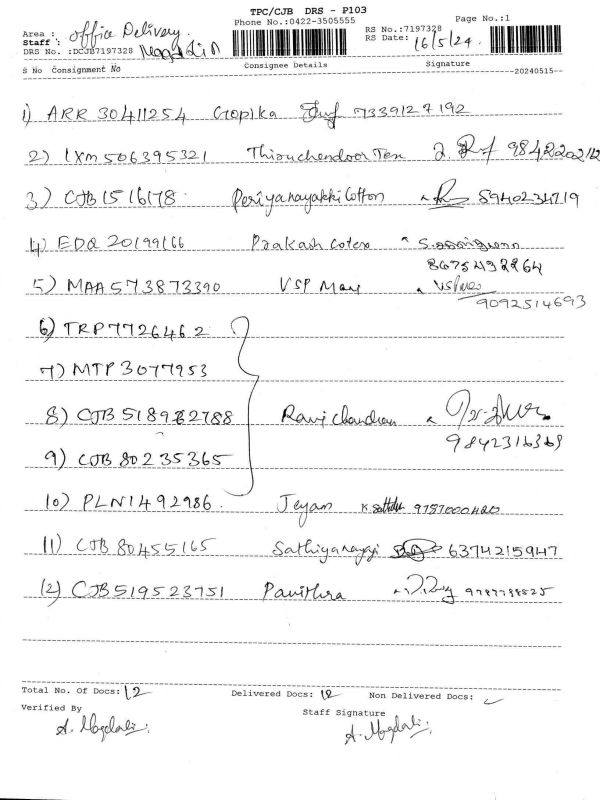 TPC/CJB DRS - P103
Phone No.:0422-3505555
Page No.:1
Area : Office Delivery
Staff : Magdalin
DRS No. :DCJB7197328
RS No.:7197328
RS Date: 16/5/24.
S No Consignment No Consignee Details Signature
20240515
1) ARR 30411254 Gopika 7339127192
2) IXM 506395321 Thiruchendoor Tex 9842202112
3) CJB 1516178 Periyanayakki Cotton 8940234719
4) EDQ 20199166 Prakash Cotex
8675432264
5) MAA 573873390 VSP Mani
9092514693
6) TRP 7726462
7) MTP 3077953
8) CJB 518962788 Ravichandran
9842316369
9) CJB 80235365
10) PLN 1492986 Jeyam
11) CJB 80455165 Sathiyanaygi 6374215947
12) CJB 519523751 Pavithra 9787788525
Total No. Of Docs: 12 Delivered Docs: 12 Non Delivered Docs:
Verified By Staff Signature
A. Magdali A. Magdali